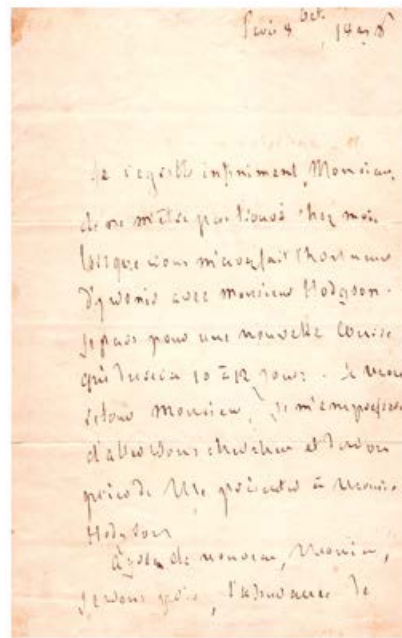 Paris 8 Oct.
Je regrette infiniment, Monsieur,
de ne m'être pas trouvé chez moi
lorsque vous m'avez fait l'honneur
d'y venir avec Monsieur Hodgson.
Je pars pour une nouvelle course
qui durera 10 à 12 jours. 
retour Monsieur, je m'empresserai
d'aller vous chercher et de vous
prier de me présenter à Monsieur
Hodgson
Agréez de nouveau, Monsieur,
je vous prie, l'assurance de